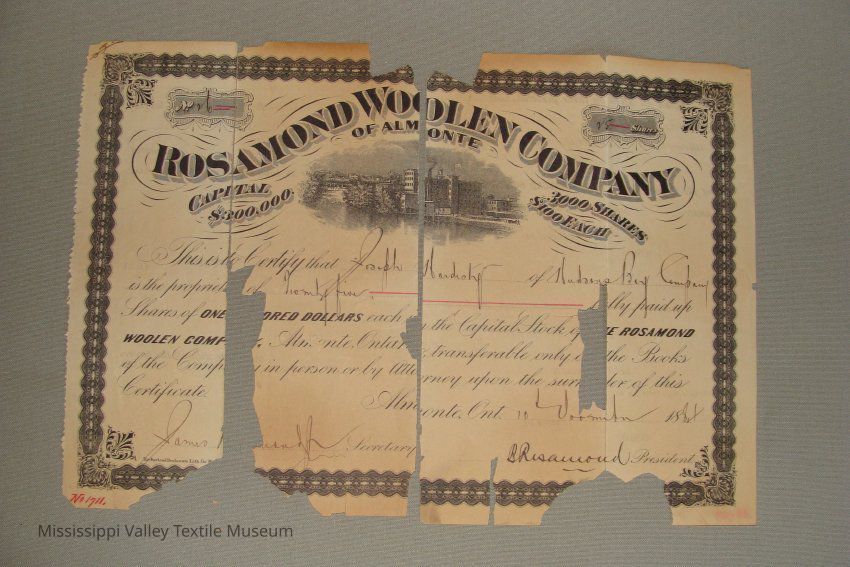 Shares
ROSAMOND WOOLEN COMPANY
OF ALMONTE
CAPITAL
$300,000.
3000 SHARES
$100 EACH
This is to Certify that Joseph Hardisty of Hudsons Bay Company
is the proprietor of Twenty five fully paid up
Shares of ONE DRED DOLLARS each in the Capital Stock of THE ROSAMOND
WOOLEN COMP Almonte, Ontario, transferable only on the Books
of the Company in person or by Attorney upon the surrender of this
Certificate.
Almonte, Ont. 10 November 188
James Secretary
B Rosamond President
No 1711.
Mississippi Valley Textile Museum